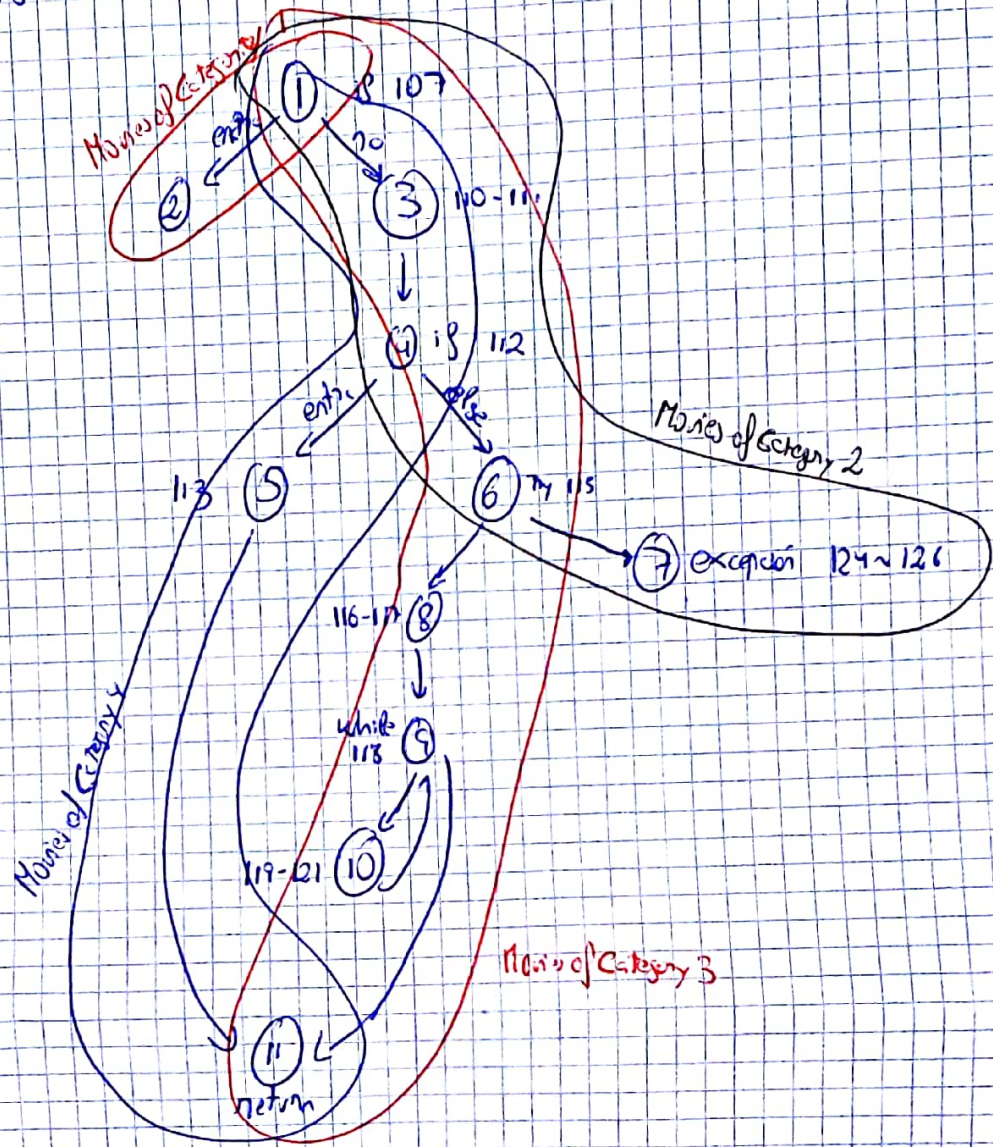 Movies of Category
1 if 107
entra
no
2
3 110-111
4 if 112
entra
else
Movies of Category 2
113 5
6 try 115
7 excepción 124~126
116-117 8
while 9
118
Movies of Category 4
119-121 10
Movies of Category 3
11
return